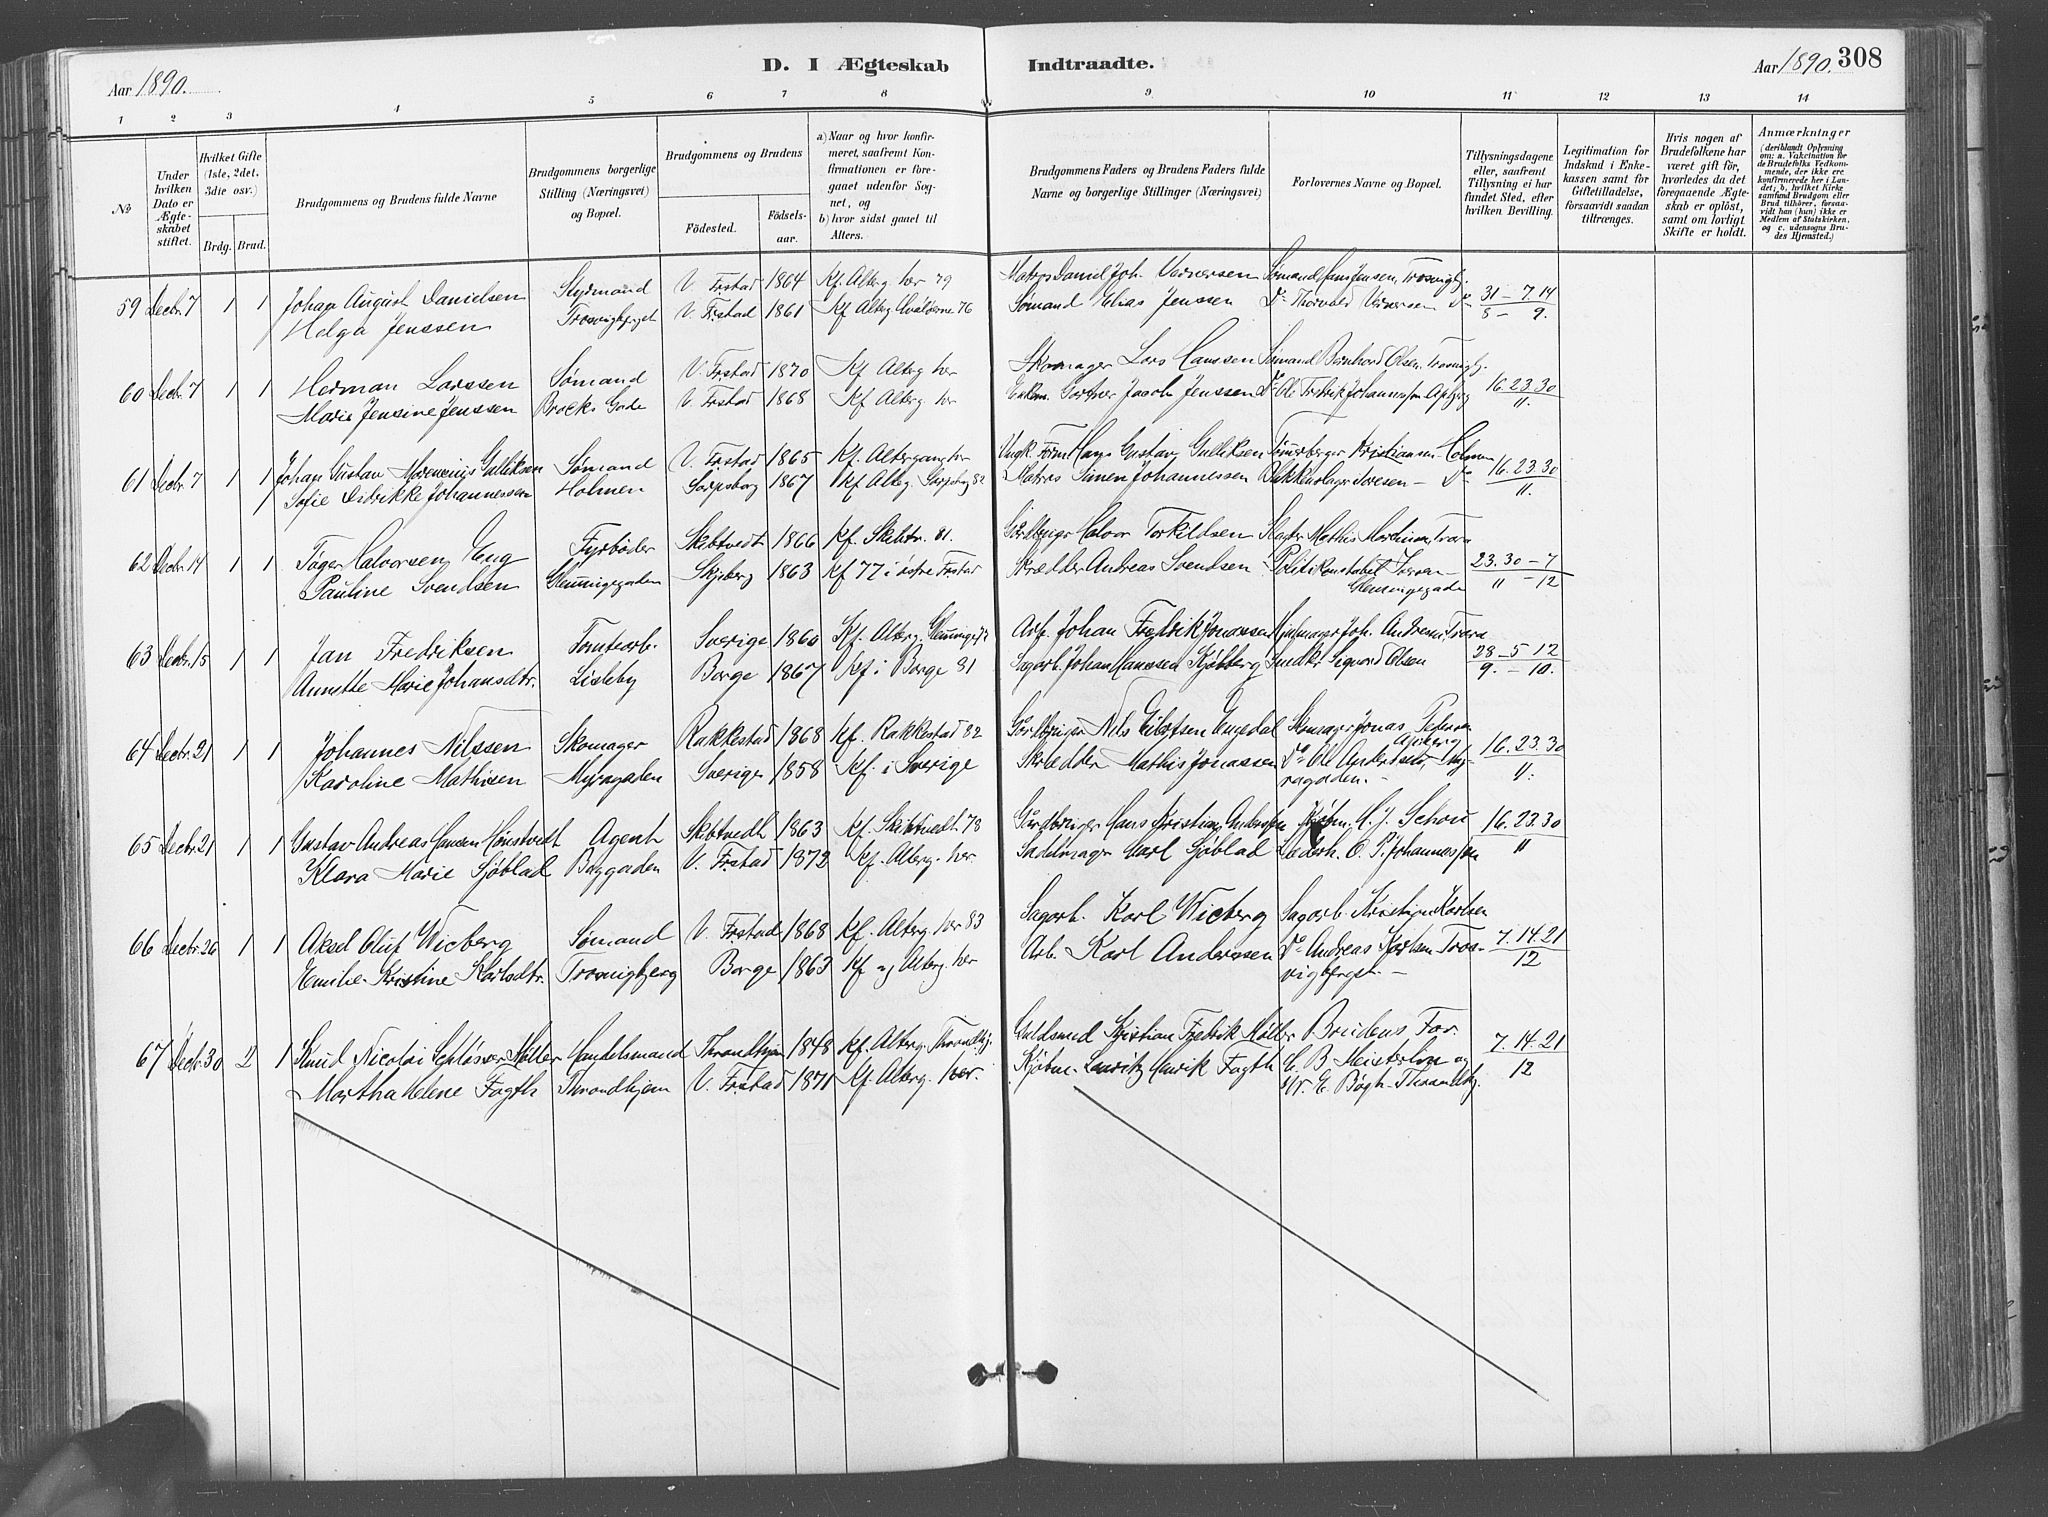 Aar 1890.
D. I Ægteskab
Indtraadte.
Aar 1890. 308
1 2 3 4 5 6 7 8 9 10 11 12 13 14
№
Under hvilken Dato er Ægteskabet stiftet.
Hvilket Gifte (1ste, 2det, 3die osv.)
Brdg. Brud.
Brudgommens og Brudens fulde Navne
Brudgommens borgerlige Stilling (Næringsvei) og Bopæl.
Brudgommens og Brudens
Fødested. Fødselsaar.
a) Naar og hvor konfirmeret, saafremt Konfirmationen er foregaaet udenfor Sognet, og
b) hvor sidst gaaet til Alters.
Brudgommens Faders og Brudens Faders fulde Navne og borgerlige Stillinger (Næringsvei)
Forlovernes Navne og Bopæl.
Tillysningsdagene eller, saafremt Tillysning ei har fundet Sted, efter hvilken Bevilling.
Legitimation for Indskud i Enkekassen samt for Giftetilladelse, forsaavidt saadan tiltrænges.
Hvis nogen af Brudefolkene har været gift før, hvorledes da det foregaaende Ægteskab er opløst, samt om lovligt Skifte er holdt.
Anmærkninger (deriblandt Oplysning om: a. Vakcination for de Brudefolks Vedkommende, der ikke ere konfirmerede her i Landet; b. hvilket Kirkesamfund Brudgom eller Brud tilhører, forsaavidt han (hun) ikke er Medlem af Statskirken, og c. udensogns Brudes Hjemsted.)
59 Decbr. 7 1 1 Johan August Danielsen Styrmand V. Frstad 1864 Kf. Alterg. her 79 Daniel Joh. Vernersen Sømand Hans Jensen, Trosvigbj.
Helga Jenssen Trosvigberget V. Frstad 1861 Kf Alterg Hvaløerne 76 Sømand Elias Jenssen Do Thorvald Vernersen Do 31 – 7.14
8 – 9.
60 Decbr. 7 1 1 Herman Larssen Sømand V. Frstad 1870 Kf Alterg her Skomager Lars Hanssen Sømand Bernhard Olsen
Marie Jensine Jenssen Brocks Gade V. Frstad 1868 Kf Alterg. her Gartner Jacob Jenssen Do Ole Fredrik Johannessen 16.23.30
11.
61 Decbr. 7 1 1 Johan Gustav Gulliksen Sømand V. Frstad 1865 Kf. Altergang her Hans Gustav Gulliksen Kristiansen Holmen
Sofie Didrikke Johannessen Holmen Sarpsborg 1867 Kf Alterg. Sarpsborg 82 Matros Simen Johannessen Blikkenslager Iversen – Do 16.23.30
11.
62 Decbr. 14 1 1 Halvorsen Eng Fyrbøder Skibtvedt 1866 Kf. Skibtv. 81. Gårdbruger Halvor Torkildsen Mathis Trara
Pauline Svendsen Glemmingegaden Skjeberg 1863 Kf 77 i østre Frstad Skrædder Andreas Svendsen Politikonstabel Iversen – 23.30 – 7
Glemmingegaden 11 – 12
63 Decbr. 15 1 1 Jan Fredriksen Tomtearb. Sverige 1860 Kf. Alterg. Glemminge Arb. Johan Fredrik Jonassen Joh. Andersen Trara
Annette Marie Johansdtr. Lisleby Borge 1867 Kf i Borge 81 Sagarb. Johan Hanssen Kjølberg Sigvard Olsen 28 – 5.12
9. – 10.
64 Decbr. 21 1 1 Johannes Nilssen Skomager Rakkestad 1868 Kf. Rakkestad 82 Gårdbruger Nils Skomager Jonas Petersen
Karoline Mathisen Myragaden Sverige 1858 Kf. i Sverige Skrædder Mathis Jonassen Do Ole Anderssen, My- 16.23.30
ragaden. – 11.
65 Decbr. 21 1 1 Gustav Andreas Hansen Agent Skibtvedt 1863 Kf. Skibtvedt 78 Gårdbruger Hans Kristian Anderssen Kjøbm. H. J. Schou 16.23.30
Klara Marie Sjöblad Baggaden V. Frstad 1872 Kf. Alterg. her Sadelmager Carl Sjöblad Læderh. O. P. Johannessen 11
66 Decbr. 26 1 1 Aksel Oluf Wicberg Sømand V. Frstad 1868 Kf. Alterg. her 83 Sagarb. Karl Wicberg Sagarb. Kristian Karlsen
Emilie Kristine Karlsdtr. Trosvigbjerg Borge 1863 Kf og Alterg. her Arb. Karl Anderssen Do Andreas Karlsen Tros- 7.14.21
vigberget. – 12
67 Decbr. 30 2 1 Knud Nicolai Schløsser Møller Handelsmand Throndhjem 1848 Kf. Alterg. Throndhj. Guldsmed Kristian Fredrik Møller Brudens Far.
Martha Helene Fagth Throndhjem V. Frstad 1871 Kf. Alterg. her. Kjøbm. Lauritz Henrik Fagth C. B. Meisterlin og 7.14.21
E. Bøgh – Throndhj. 12